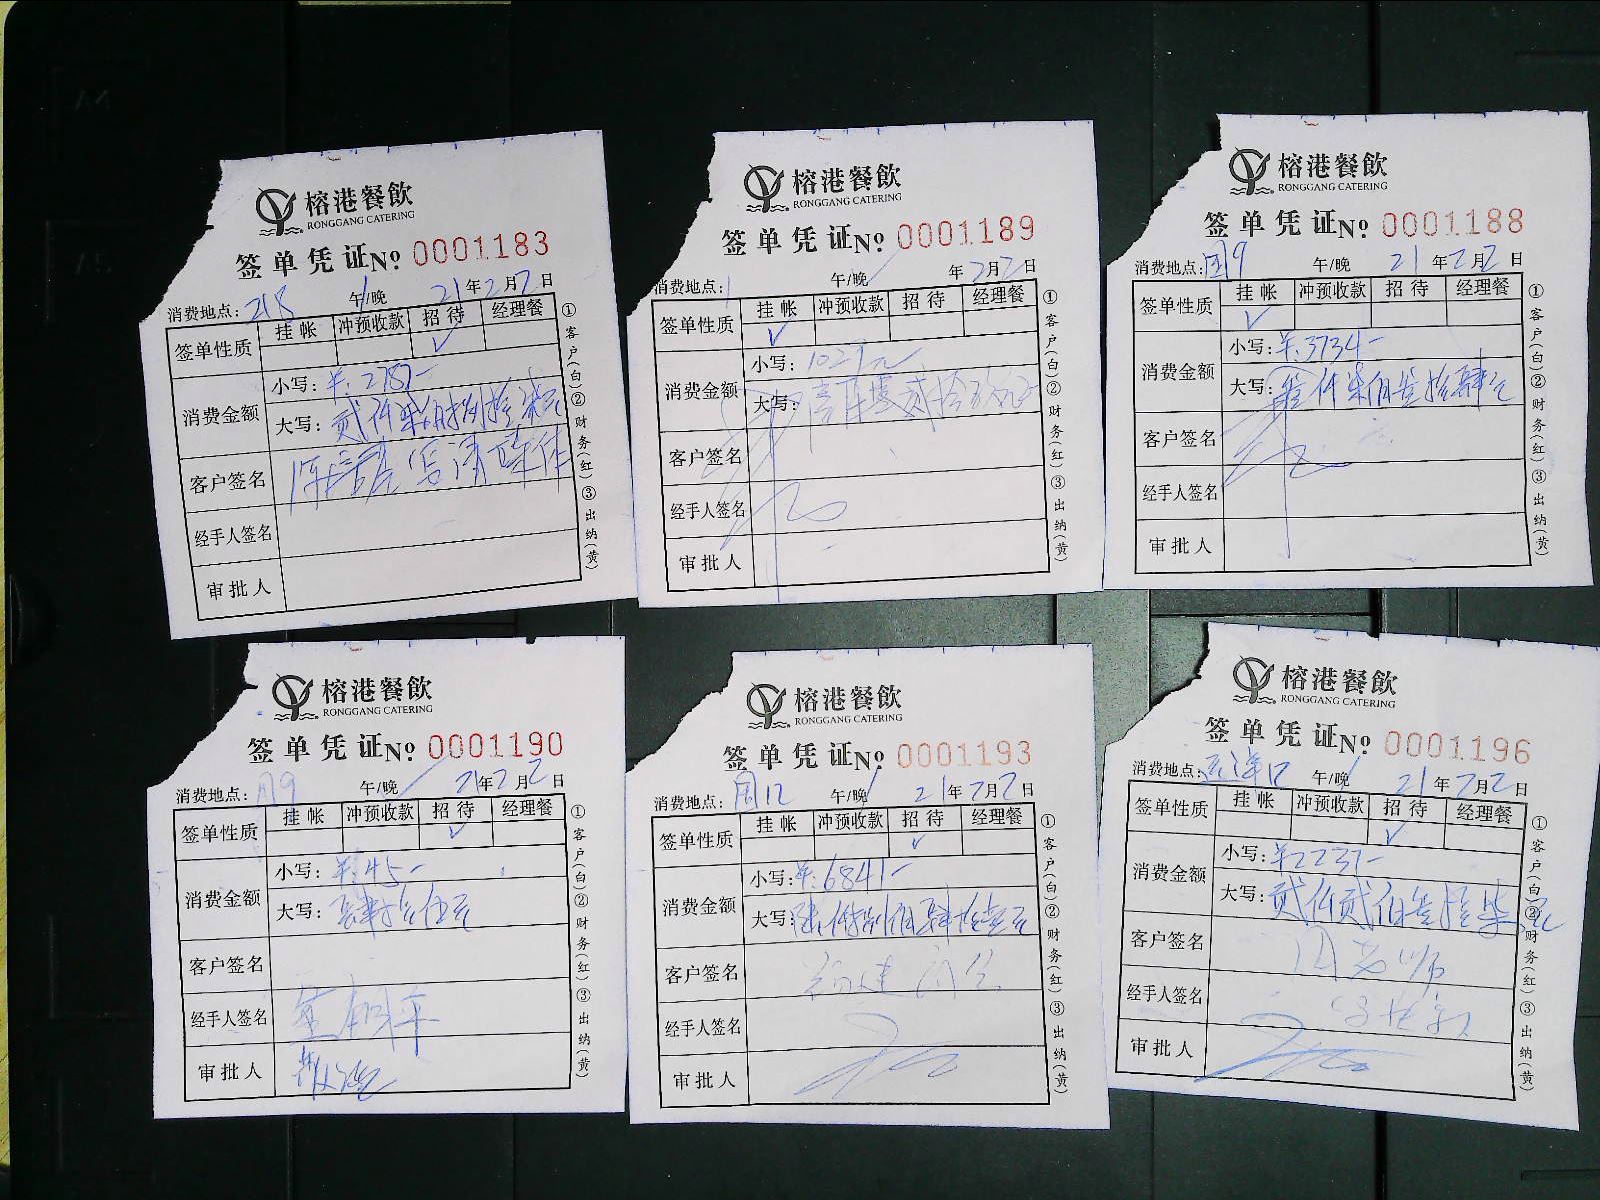 榕港餐飲
RONGGANG CATERING
签单凭证№ 0001183
消费地点: 218 午/晚 21年2月2日
签单性质 挂帐 冲预收款 招待 经理餐
✓
消费金额
小写: ¥:2787-
大写: 贰仟柒佰捌拾柒元
客户签名
经手人签名
审批人
①客户(白)②财务(红)③出纳(黄)
榕港餐飲
RONGGANG CATERING
签单凭证№ 0001189
消费地点: 午/晚 年2月2日
签单性质 挂帐 冲预收款 招待 经理餐
✓
消费金额
小写:
大写:
客户签名
经手人签名
审批人
①客户(白)②财务(红)③出纳(黄)
榕港餐飲
RONGGANG CATERING
签单凭证№ 0001188
消费地点: 午/晚 21年2月2日
签单性质 挂帐 冲预收款 招待 经理餐
✓
消费金额
小写: ¥:3734-
大写: 叁仟柒佰叁拾肆元
客户签名
经手人签名
审批人
①客户(白)②财务(红)③出纳(黄)
榕港餐飲
RONGGANG CATERING
签单凭证№ 0001190
消费地点: 午/晚 21年2月2日
签单性质 挂帐 冲预收款 招待 经理餐
✓
消费金额
小写: ¥:45-
大写: 肆拾伍元
客户签名
经手人签名
审批人
①客户(白)②财务(红)③出纳(黄)
榕港餐飲
RONGGANG CATERING
签单凭证№ 0001193
消费地点: 午/晚 21年2月2日
签单性质 挂帐 冲预收款 招待 经理餐
✓
消费金额
小写: ¥:6841-
大写: 陆仟捌佰肆拾壹元
客户签名
经手人签名
审批人
①客户(白)②财务(红)③出纳(黄)
榕港餐飲
RONGGANG CATERING
签单凭证№ 0001196
消费地点: 午/晚 21年2月2日
签单性质 挂帐 冲预收款 招待 经理餐
✓
消费金额
小写: ¥2237-
大写: 贰仟贰佰叁拾柒元
客户签名 周老师
经手人签名
审批人
①客户(白)②财务(红)③出纳(黄)